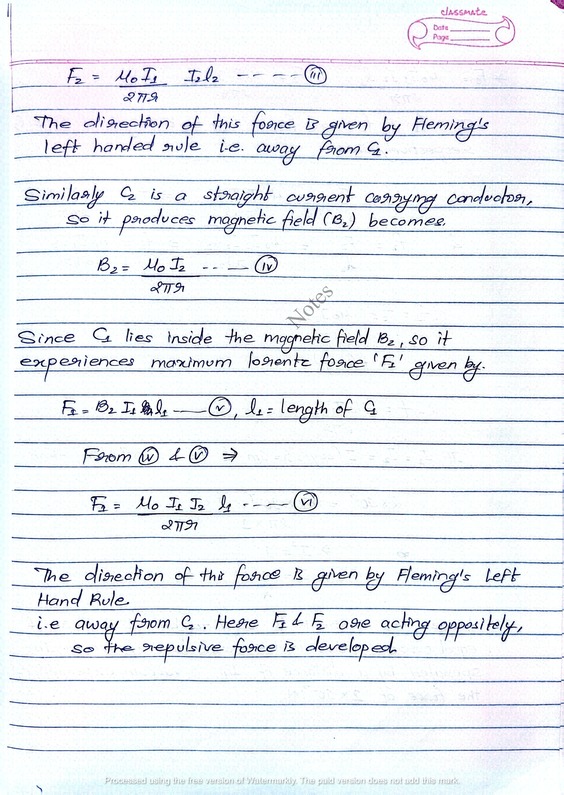 classmate
Date
Page
F₂ = μ₀ I₁ I₂ l₂ ---- (iii)
2πr
The direction of this force is given by Fleming's
left handed rule i.e. away from C₁.
Similarly C₂ is a straight current carrying conductor,
so it produces magnetic field (B₂) becomes.
B₂ = μ₀ I₂ ---- (iv)
2πr
Notes
Since C₁ lies inside the magnetic field B₂, so it
experiences maximum lorentz force 'F₁' given by.
F₁ = B₂ I₁ l₁ —— (v), l₁ = length of C₁
From (iv) & (v) ⇒
F₁ = μ₀ I₁ I₂ l₁ ---- (vi)
2πr
The direction of this force is given by Fleming's Left
Hand Rule.
i.e away from C₂. Here F₁ & F₂ are acting oppositely,
so the repulsive force is developed.
Processed using the free version of Watermarkly. The paid version does not add this mark.